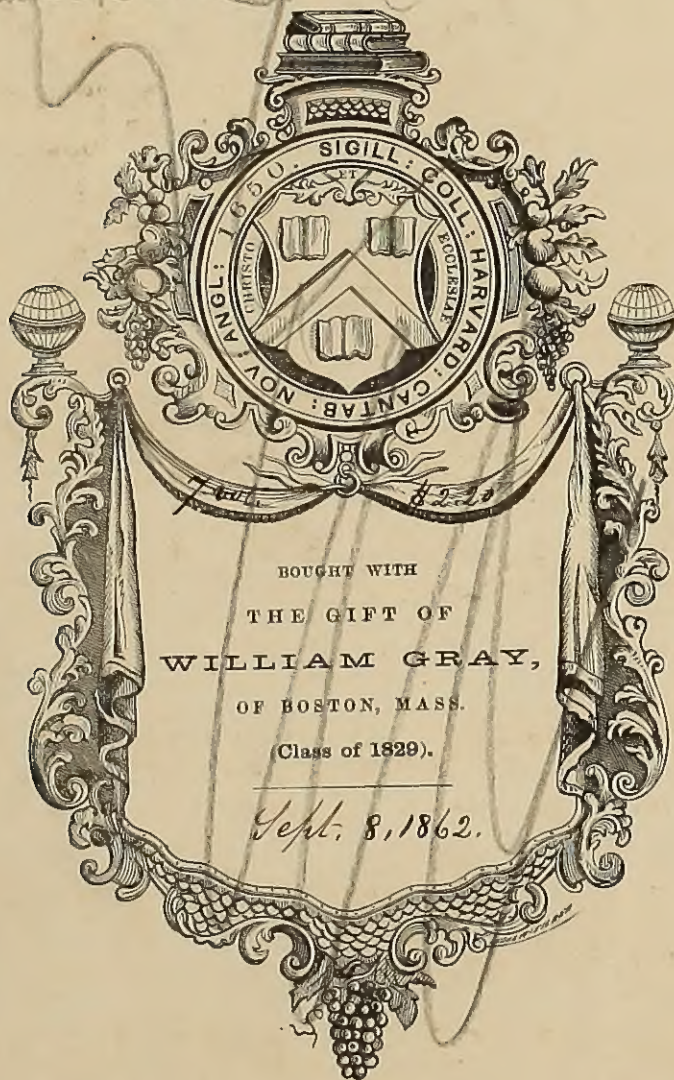 SIGILL: COLL: HARVARD: CANTAB: NOV: ANGL: 1650.
ET
CHRISTO
ECCLESIAE
7 vol. $2.20
BOUGHT WITH
THE GIFT OF
WILLIAM GRAY,
OF BOSTON, MASS.
(Class of 1829).
Sept. 8, 1862.